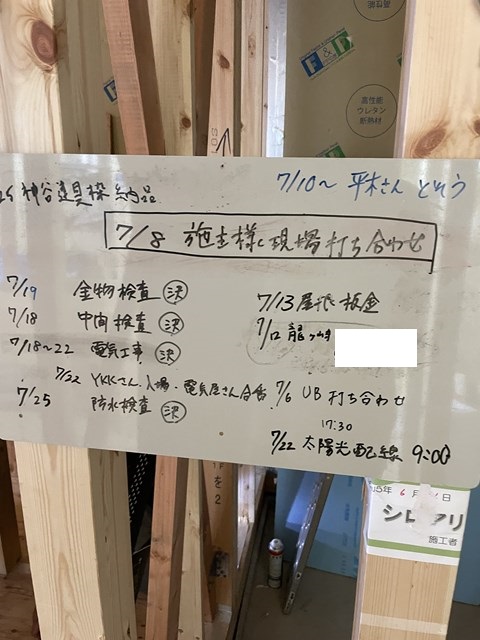 高性能
ウレタン
断熱材
F&F
7/10~ 平木さん どれう
神谷道具様 納品
7/8 施主様と現場打ち合わせ
7/19 金物検査 決
7/18 中間検査 決
7/18~22 電気工事 決
7/22 YKKさん入場・電気屋さん合番
7/25 防水検査 決
7/13 屋根板金
7/6 UB 打ち合わせ
17:30
7/22 太陽光配線 9:00
を2
5年 6月 日
シロアリ
施工者